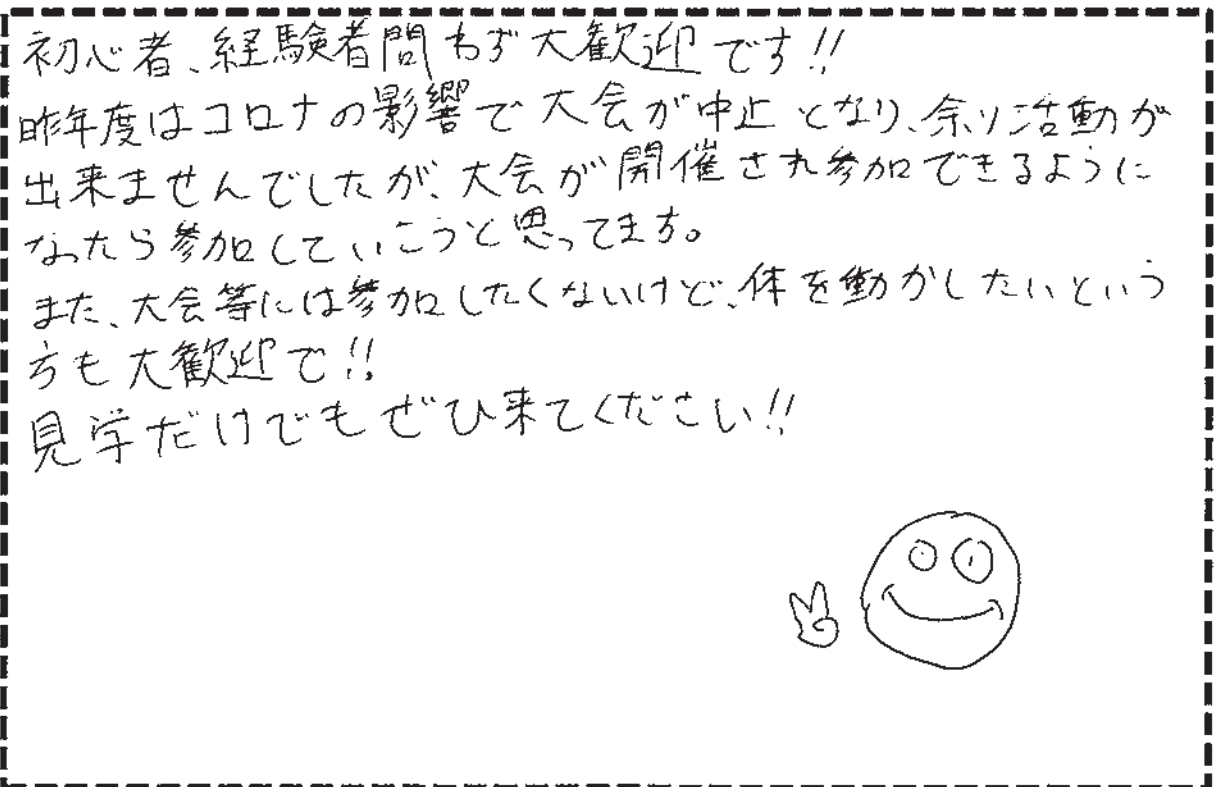 初心者、経験者問わず大歓迎です!!
昨年度はコロナの影響で大会が中止となり、余り活動が
出来ませんでしたが、大会が開催され参加できるように
なったら参加していこうと思ってます。
また、大会等には参加したくないけど、体を動かしたいという
方も大歓迎で!!
見学だけでもぜひ来てください!!